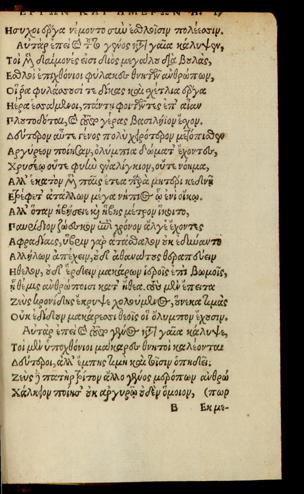 Ἥσυχοι ἔργα νέμοντο σὺν ἐσθλοῖσιν πολέεσσιν.
Αὐτὰρ ἐπεὶ δὴ τοῦτο γένος κατὰ γαῖα κάλυψεν,
Τοὶ μὲν δαίμονές εἰσι διὸς μεγάλου διὰ βουλὰς,
Ἐσθλοὶ ἐπιχθόνιοι φύλακες θνητῶν ἀνθρώπων,
Οἵ ῥα φυλάσσουσί τε δίκας καὶ σχέτλια ἔργα
Ἠέρα ἑσσάμενοι, πάντη φοιτῶντες ἐπ' αἶαν
Πλουτοδόται, καὶ τοῦτο γέρας βασιλήϊον ἔσχον.
Δεύτερον αὖτε γένος πολὺ χειρότερον μετόπισθεν
Ἀργύρεον ποίησαν, ὀλύμπια δώματ' ἔχοντες,
Χρυσέῳ οὔτε φυὴν ἐναλίγκιον, οὔτε νόημα,
Ἀλλ' ἑκατὸν μὲν παῖς ἔτεα παρὰ μητέρι κεδνῇ
Ἐτρέφετ' ἀτάλλων μέγα νήπιος ᾧ ἐνὶ οἴκῳ.
Ἀλλ' ὅταν ἡβήσειε καὶ ἥβης μέτρον ἵκοιτο,
Παυρίδιον ζώεσκον ἐπὶ χρόνον ἄλγε' ἔχοντες
Ἀφραδίαις, ὕβριν γὰρ ἀτάσθαλον οὐκ ἐδύναντο
Ἀλλήλων ἀπέχειν, οὐδ' ἀθανάτους θεραπεύειν
Ἤθελον, οὐδ' ἔρδειν μακάρων ἱεροῖς ἐπὶ βωμοῖς,
ᾗ θέμις ἀνθρώποισι κατ' ἤθεα. τοὺς μὲν ἔπειτα
Ζεὺς κρονίδης ἔκρυψε χολούμενος, οὕνεκα τιμὰς
Οὐκ ἐδίδουν μακάρεσσι θεοῖς οἳ ὄλυμπον ἔχουσιν.
Αὐτὰρ ἐπεὶ καὶ τοῦτο γένος κατὰ γαῖα κάλυψε,
Τοὶ μὲν ὑποχθόνιοι μάκαρες θνητοὶ καλέονται
Δεύτεροι, ἀλλ' ἔμπης τιμὴ καὶ τοῖσιν ὀπηδεῖ.
Ζεὺς δὲ πατὴρ τρίτον ἄλλο γένος μερόπων ἀνθρώ
Χάλκειον ποίησ' οὐκ ἀργυρῷ οὐδὲν ὅμοιον, (πων
Β Ἐκ με-